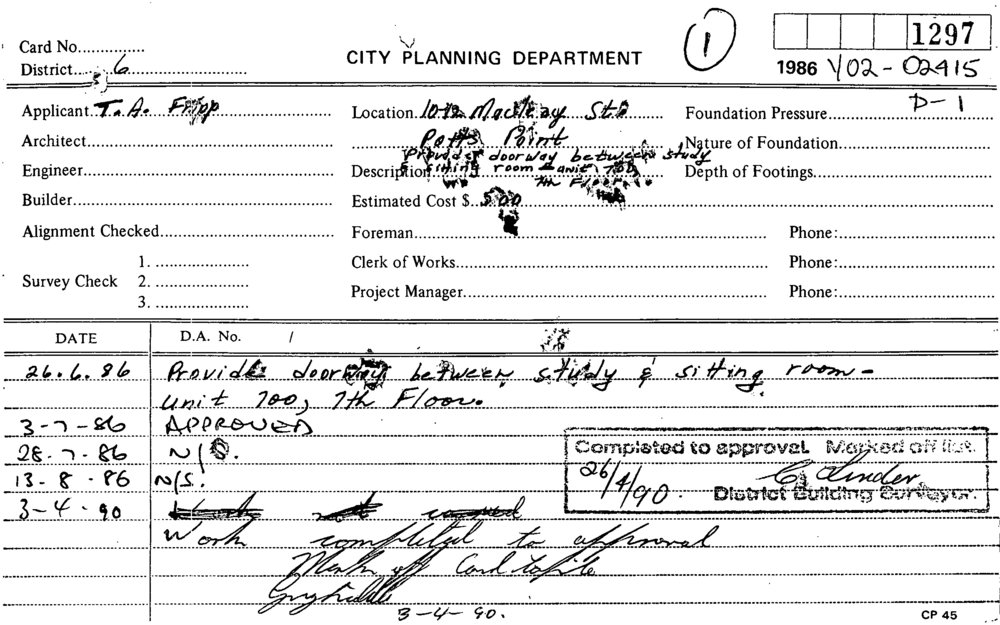 1
1297
Card No.
CITY PLANNING DEPARTMENT
1986 Y02-02415
District 6
D-1
Applicant T. A. Fripp
Location 10-12 Macleay St
Foundation Pressure
Architect
Potts Point
Nature of Foundation
Provide doorway between study
Engineer
Description & sitting room unit 700,
Depth of Footings
7th Floor.
Builder
Estimated Cost $ 500
Alignment Checked
Foreman
Phone:
1.
Clerk of Works
Phone:
Survey Check 2.
Project Manager
Phone:
3.
DATE D.A. No. /
26.6.86 Provide doorway between study & sitting room -
unit 700, 7th Floor.
3-7-86 APPROVED
28-7-86 N/S.
13-8-86 N/S.
3-4-90
Completed to approval. Marked off list.
26/4/90.
District Building Surveyor.
Work completed to approval
Mark off Card to file
3-4-90.
CP 45